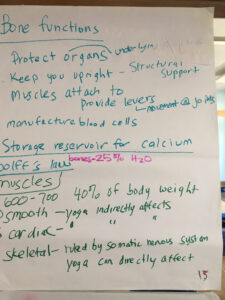 Bone functions
Protect organs underlying
. Keep you upright - Structural Support
Muscles attach to
Provide levers
movement @ joints
manufacture blood cells
Storage reservoir for calcium
Wolff's law
bones-25% H2O
muscles
600-700 40% of body weight
smooth - yoga indirectly affects
cardiac - " " "
Skeletal - ruled by somatic nervous system
yoga can directly affect
15